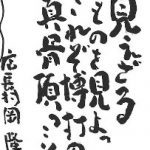 見えざる
ものを見よっ
これぞ博打の
真骨頂
店長村岡 隆